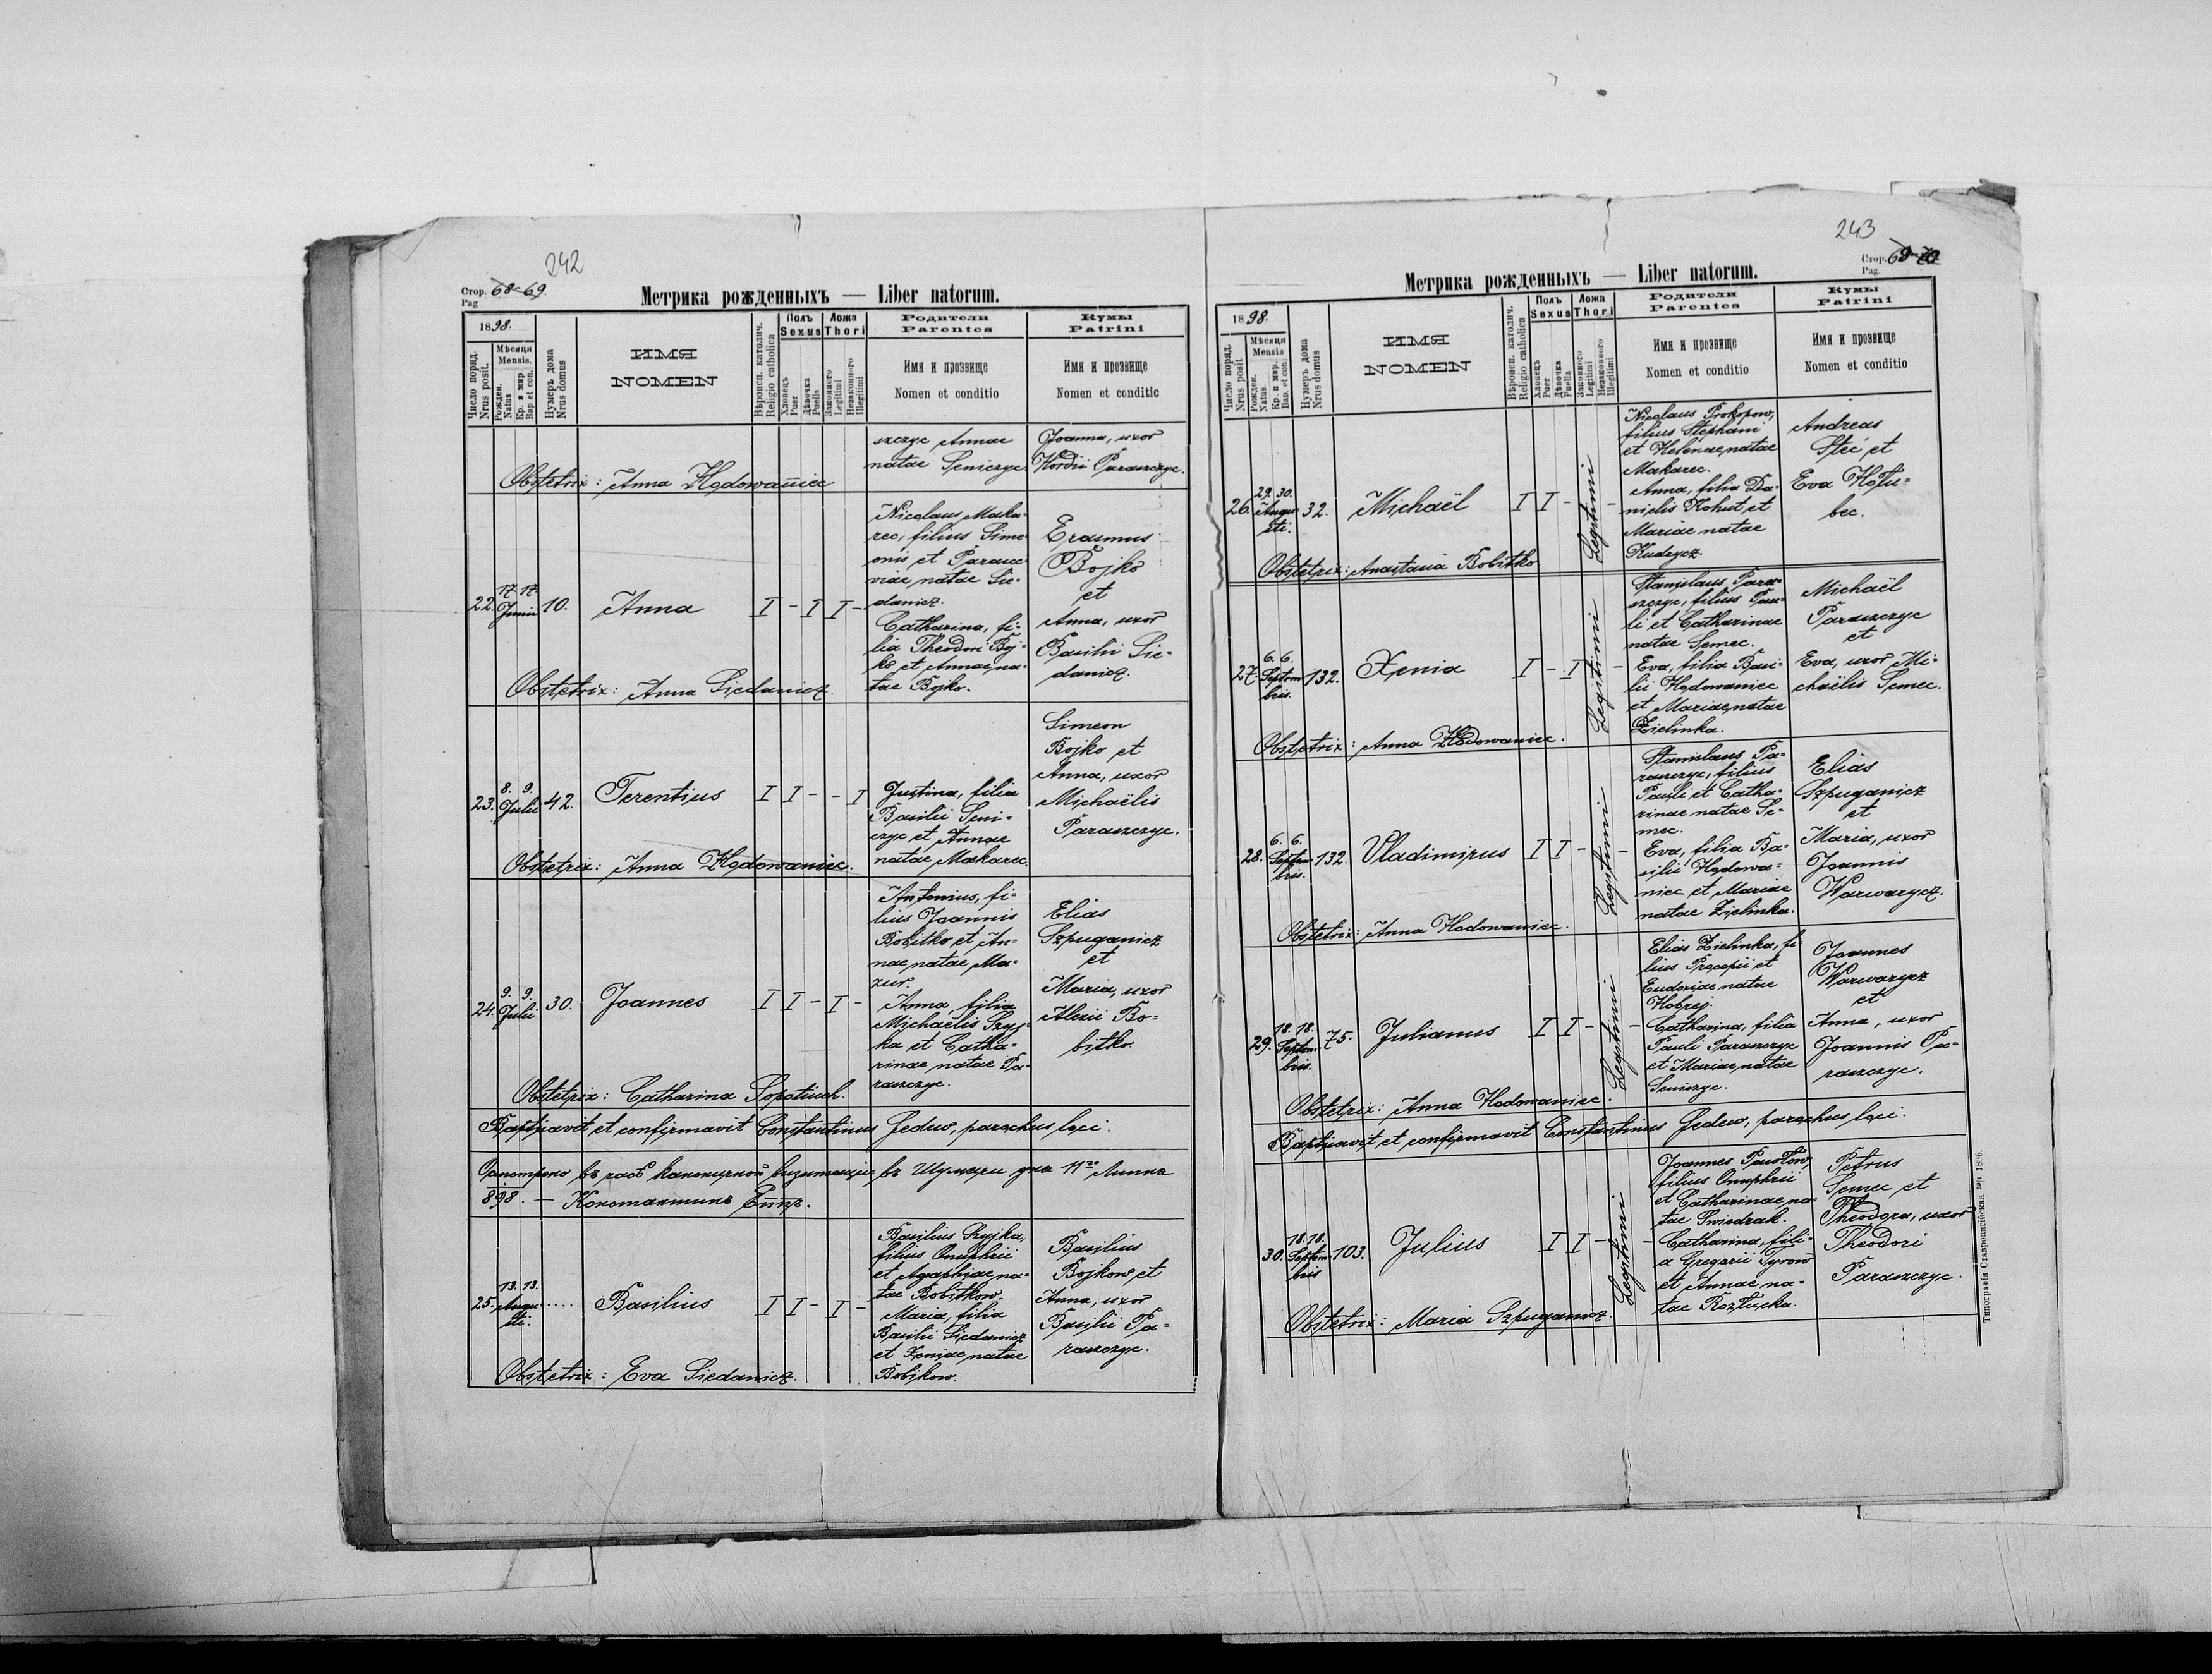 242
Стор. 68-69.
Pag
Метрика рожденныхъ — Liber natorum.
1898.
Число поряд.
Nrus posit.
Мѣсяця
Mensis.
Рожден.
Natus
Кр. и мир.
Bap. et con.
Нумеръ дома
Nrus domus
ИМЯ
NOMEN
Вѣроисп. католич.
Religio catholica
Полъ
Sexus
Хлопецъ
Puer
Дѣвочка
Puella
Ложа
Thori
Законного
Legitimi
Незаконного
Illegitimi
Родители
Parentes
Имя и прозвище
Nomen et conditio
Кумы
Patrini
Имя и прозвище
Nomen et conditio
szczyc Annae
natae Seniczyc.
Joanna, uxor
Hordii Paraszczyc.
Obstetrix: Anna Hodowaniec
22.
17. 17.
Junii
10.
Anna
I - I I -
Nicolaus Maka-
rec, filius Sime-
onis et Parasce-
viae natae Sie-
danicz.
Catharina, fi-
lia Theodori Boj-
ko et Annae na-
tae Bojko.
Erasmus
Bojko
et
Anna, uxor
Basilii Sie-
danicz.
Obstetrix: Anna Siedanicz.
23.
8. 9.
Julii
42.
Terentius
I I - - I
Justina, filia
Basilii Seni-
czyc et Annae
natae Makarec.
Simeon
Bojko et
Anna, uxor
Michaëlis
Paraszczyc.
Obstetrix: Anna Hodowaniec.
24.
9. 9.
Julii
30.
Joannes
I I - I -
Antonius, fi-
lius Joannis
Bobitko et An-
nae natae Ma-
zur.
Anna, filia
Michaëlis Szyj-
ka et Catha-
rinae natae Pa-
raszczyc.
Elias
Szpuganicz
et
Maria, uxor
Alexii Bo-
bitko.
Obstetrix: Catharina Sopotiuch.
Baptisavit et confirmavit Constantinus Fedew, parochus loci.
898. — Константинъ Еппр.
25.
13. 13.
Augu-
sti.
.....
Basilius
I I - I -
Basilius Szyjka,
filius Onuphrii
et Agaphiae na-
tae Bobitkow.
Maria, filia
Basilii Siedanicz
et Xeniae natae
Bobikow.
Basilius
Bojkow et
Anna, uxor
Basilii Pa-
raszczyc.
Obstetrix: Eva Siedanicz.
243
Стор. 69-70
Pag.
Метрика рожденныхъ — Liber natorum.
1898.
Число поряд.
Nrus posit
Мѣсяця
Mensis
Рожден.
Natus.
Кр. и мир.
Bap. et con.
Нумеръ дома
Nrus domus
ИМЯ
NOMEN
Вѣроисп. католич.
Religio catholica
Полъ
Sexus
Хлопецъ
Puer
Дѣвочка
Puella
Ложа
Thori
Законного
Legitimi
Незаконного
Illegitimi
Родители
Parentes
Имя и прозвище
Nomen et conditio
Кумы
Patrini
Имя и прозвище
Nomen et conditio
26.
29. 30.
Augu-
sti.
32.
Michaël
I I -
Legitimi
Nicolaus Prokopow,
filius Stephani
et Helenae natae
Makarec.
Anna, filia Da-
nielis Kohut et
Mariae natae
Kudrycz.
Andreas
Steć et
Eva Hołu-
bec.
Obstetrix: Anastasia Bobitko
27.
6. 6.
Septem-
bris.
132.
Xenia
I - I -
Legitimi
Stanislaus Para-
szczyc, filius Pau-
li et Catharinae
natae Semec.
Eva, filia Basi-
lii Hodowaniec
et Mariae natae
Zielinka.
Michaël
Paraszczyc
et
Eva, uxor Mi-
chaëlis Semec.
Obstetrix: Anna Hodowaniec.
28.
6. 6.
Septem-
bris.
132.
Vladimirus
I I - -
Legitimi
Stanislaus Pa-
raszczyc, filius
Pauli et Catha-
rinae natae Se-
mec.
Eva, filia Ba-
silii Hodowa-
niec et Mariae
natae Zielinka.
Elias
Szpuganicz
et
Maria, uxor
Joannis
Warwarycz.
Obstetrix: Anna Hodowaniec.
29.
18. 18.
Septem-
bris.
75.
Julianus
I I - -
Legitimi
Elias Zielinka, fi-
lius Procopii et
Eudoxiae natae
Hobzej.
Catharina, filia
Pauli Paraszczyc
et Mariae natae
Seniczyc.
Joannes
Warwarycz
et
Anna, uxor
Joannis Pa-
raszczyc.
Obstetrix: Anna Hodowaniec.
Baptisavit et confirmavit Constantinus Fedew, parochus loci.
30.
18. 18.
Septem-
bris
103.
Julius
I I - -
Legitimi
Joannes Pawłow,
filius Onuphrii
et Catharinae na-
tae Swiedrak.
Catharina, fili-
a Gregorii Tyrow
et Annae na-
tae Rozłucka.
Petrus
Semec et
Theodora, uxor
Theodori
Paraszczyc.
Obstetrix: Maria Szpuganicz.